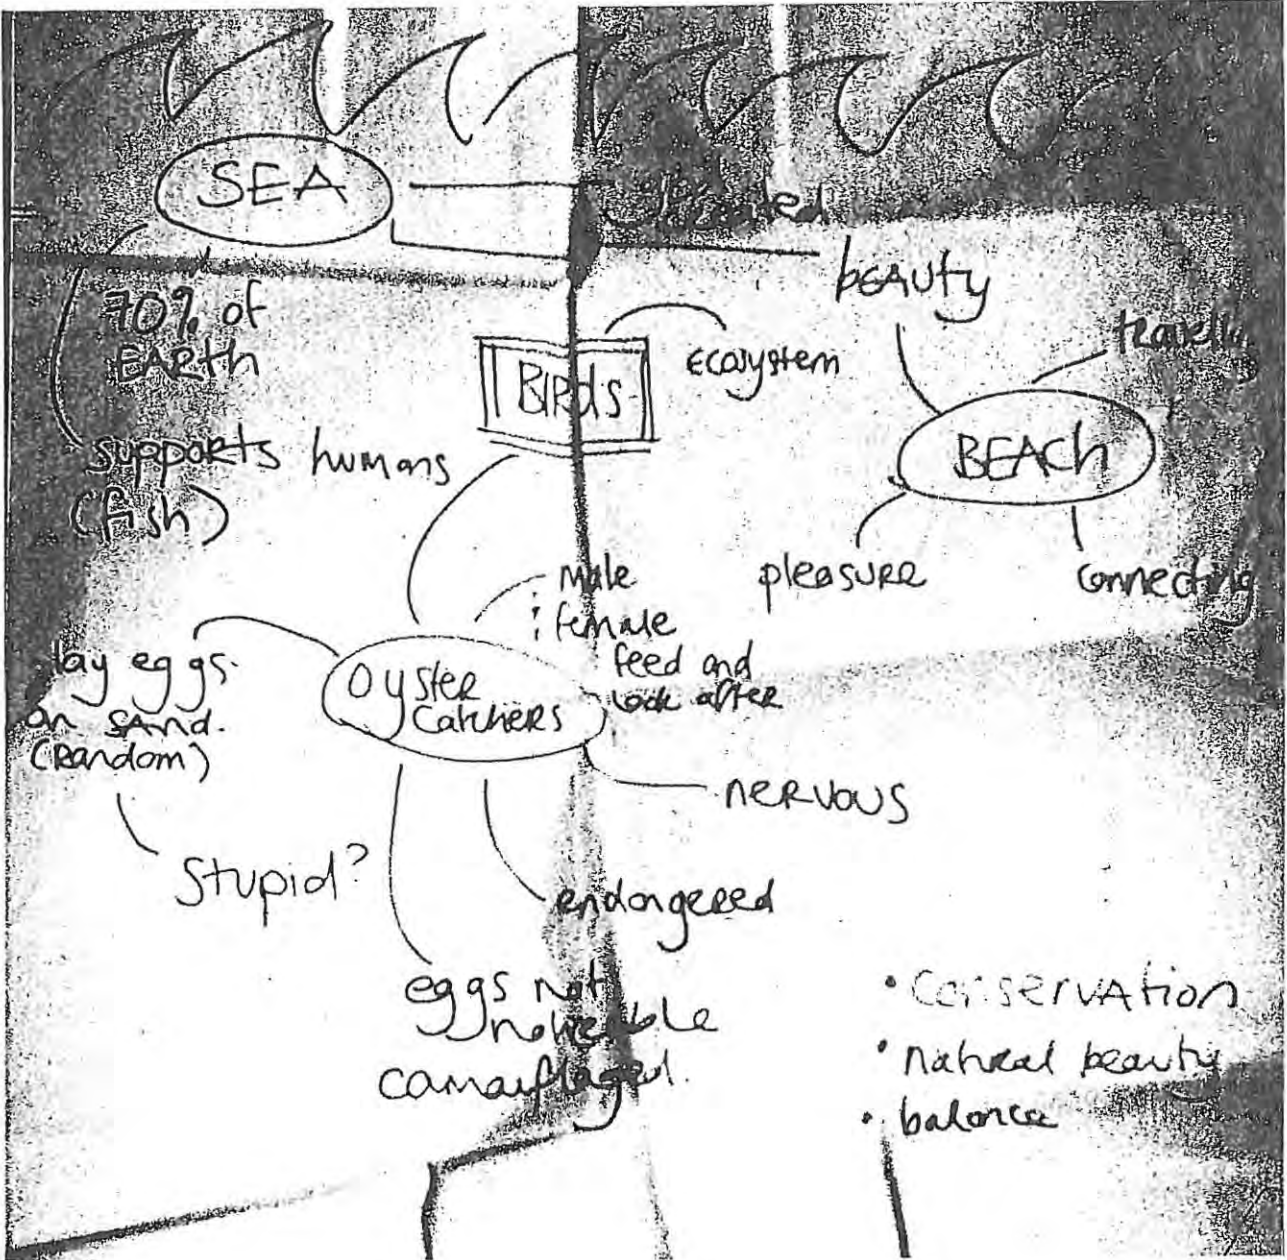 SEA
beauty
70% of
EARth
BIRds
ecosystem
BEACh
supports humans
(fish)
pleasure
connecting
male
female
feed and
look after
lay eggs
on sand.
(Random)
Oyster
Catchers
nervous
Stupid?
endangered
eggs not
noticeable
camauflaged.
• conservation
• natural beauty
• balance